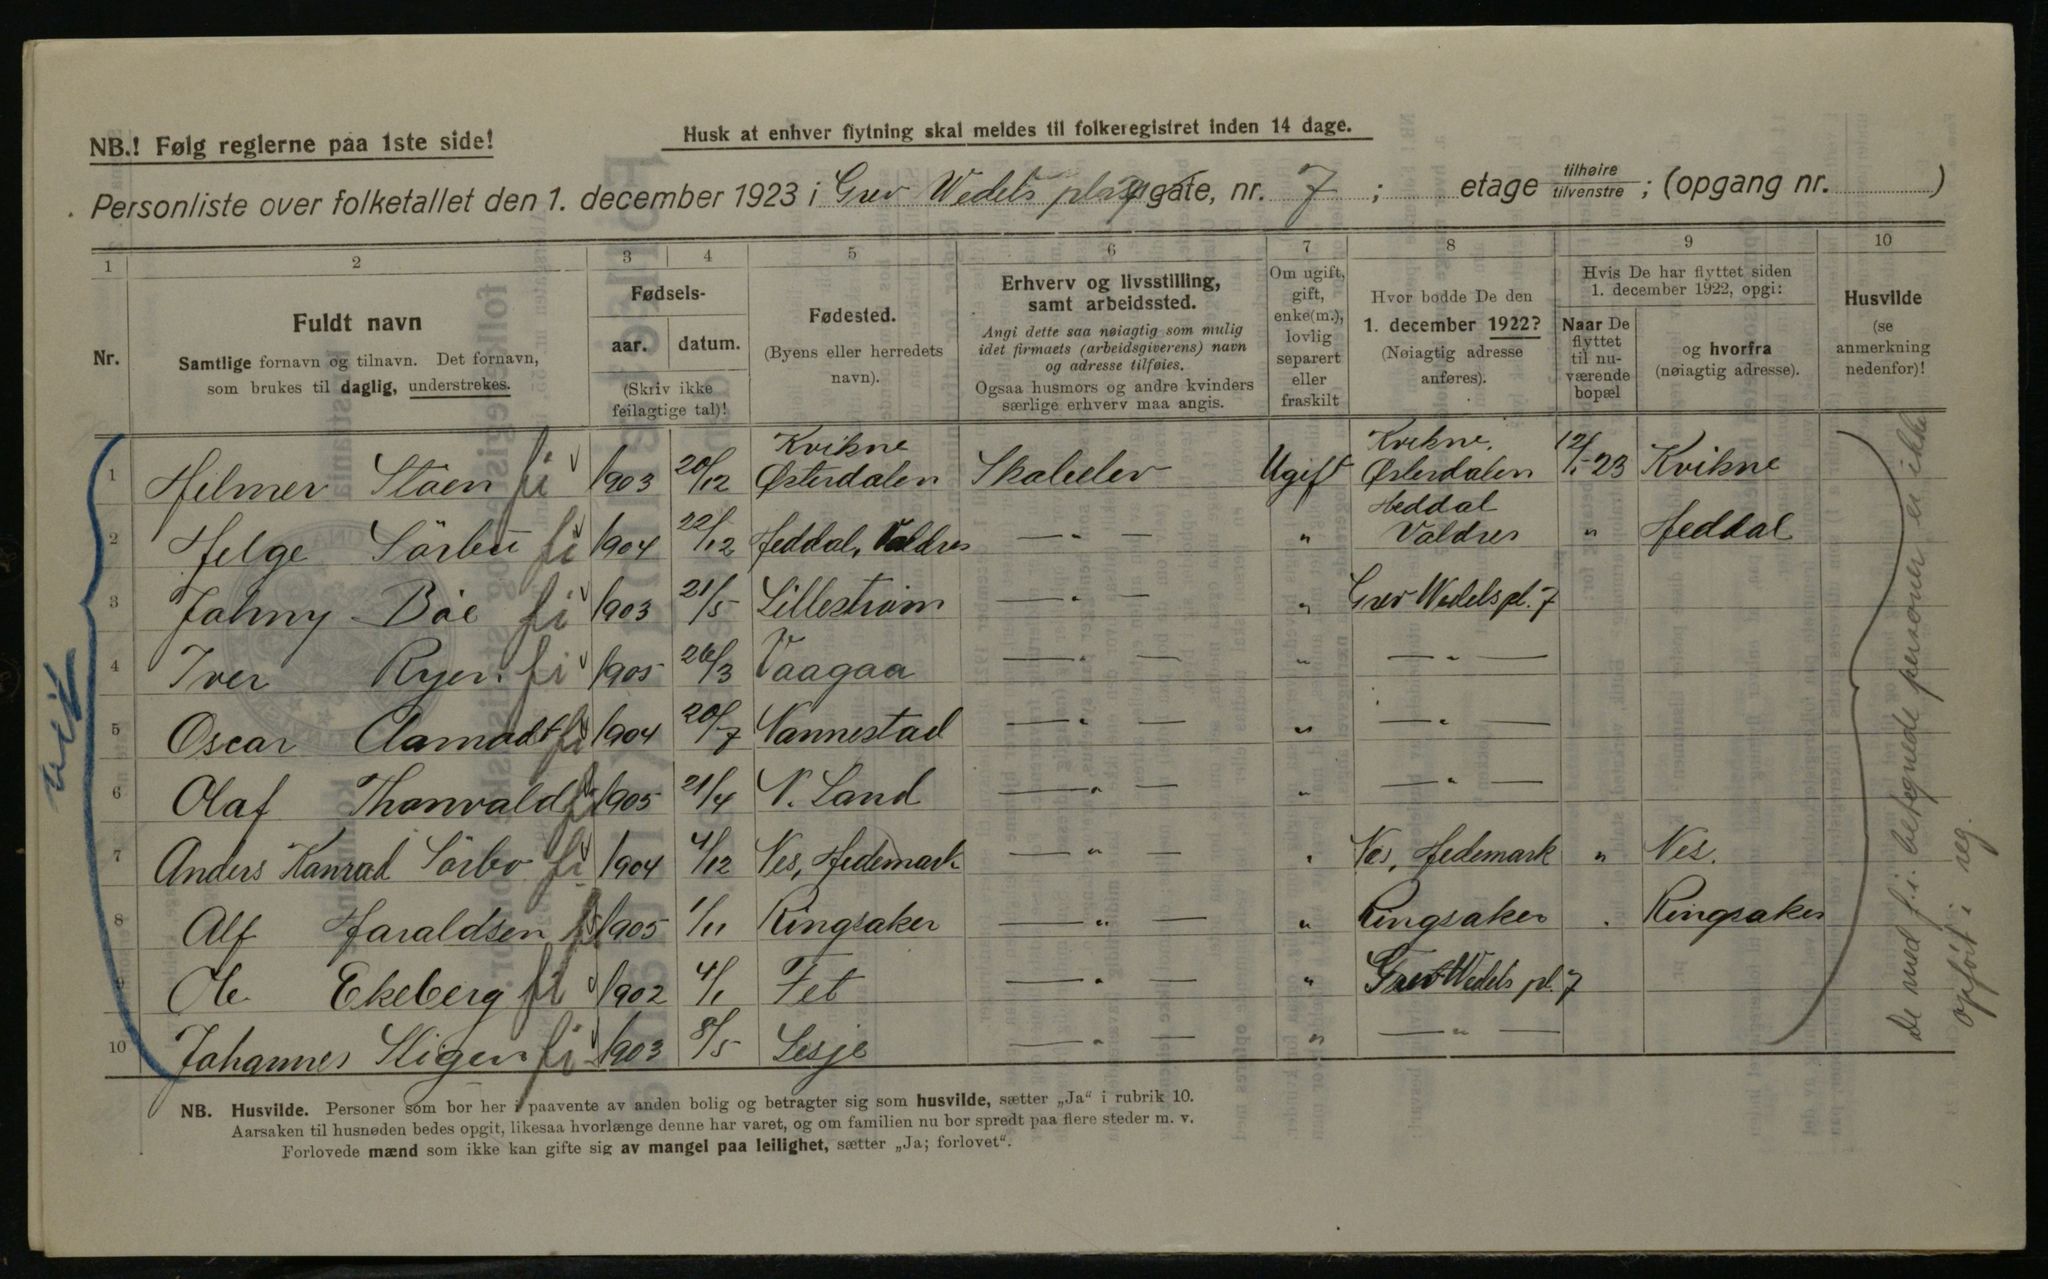 NB.! Følg reglerne paa 1ste side!
Husk at enhver flytning skal meldes til folkeregistret inden 14 dage.
Personliste over folketallet den 1. december 1923 i Grev Wedels plas gate, nr. 7 ; etage tilhøire tilvenstre ; (opgang nr. )
1 2 3 4 5 6 7 8 9 10
Nr.
Fuldt navn
Samtlige fornavn og tilnavn. Det fornavn,
som brukes til daglig, understrekes.
Fødsels-
aar. datum.
(Skriv ikke
feilagtige tal)!
Fødested.
(Byens eller herredets
navn).
Erhverv og livsstilling,
samt arbeidssted.
Angi dette saa nøiagtig som mulig
idet firmaets (arbeidsgiverens) navn
og adresse tilføies.
Ogsaa husmors og andre kvinders
særlige erhverv maa angis.
Om ugift,
gift,
enke(m.),
lovlig
separert
eller
fraskilt
Hvor bodde De den
1. december 1922?
(Nøiagtig adresse
anføres).
Hvis De har flyttet siden
1. december 1922, opgi:
Naar De
flyttet
til nu-
værende
bopæl
og hvorfra
(nøiagtig adresse).
Husvilde
(se
anmerkning
nedenfor)!
1 Hilmer Støen fi 1903 20/12 Kvikne Østerdalen Skoleelev Ugift Kvikne, Østerdalen 12/1-23 Kvikne
2 Helge Sörbu fi 1904 22/12 Heddal, Valdres — " — " Heddal Valdres " Heddal
3 Johny Böe fi 1903 21/5 Lilleström — " — " Grev Wedels pl. 7
4 Iver Ryen fi 1905 26/3 Vaagaa — " — " — " —
5 Oscar Aamodt fi 1904 20/7 Nannestad — " — " — " —
6 Olaf Thorvald fi 1905 21/4 N. Land — " — " — " —
7 Anders Konrad Sörbo fi 1904 4/12 Nes, Hedemark — " — " Nes, Hedemark " Nes.
8 Alf Haraldsen fi 1905 1/11 Ringsaker — " — " Ringsaker " Ringsaker
9 Ole Ekeberg fi 1902 4/1 Fet — " — " Grev Wedels pl. 7
10 Johannes Stigen fi 1903 8/5 Lesje — " — " — " —
De med f.i. betegnede personer er ikke
opført i reg.
NB. Husvilde. Personer som bor her i paavente av anden bolig og betragter sig som husvilde, sætter „Ja“ i rubrik 10.
Aarsaken til husnøden bedes opgit, likesaa hvorlænge denne har varet, og om familien nu bor spredt paa flere steder m. v.
Forlovede mænd som ikke kan gifte sig av mangel paa leilighet, sætter „Ja; forlovet“.